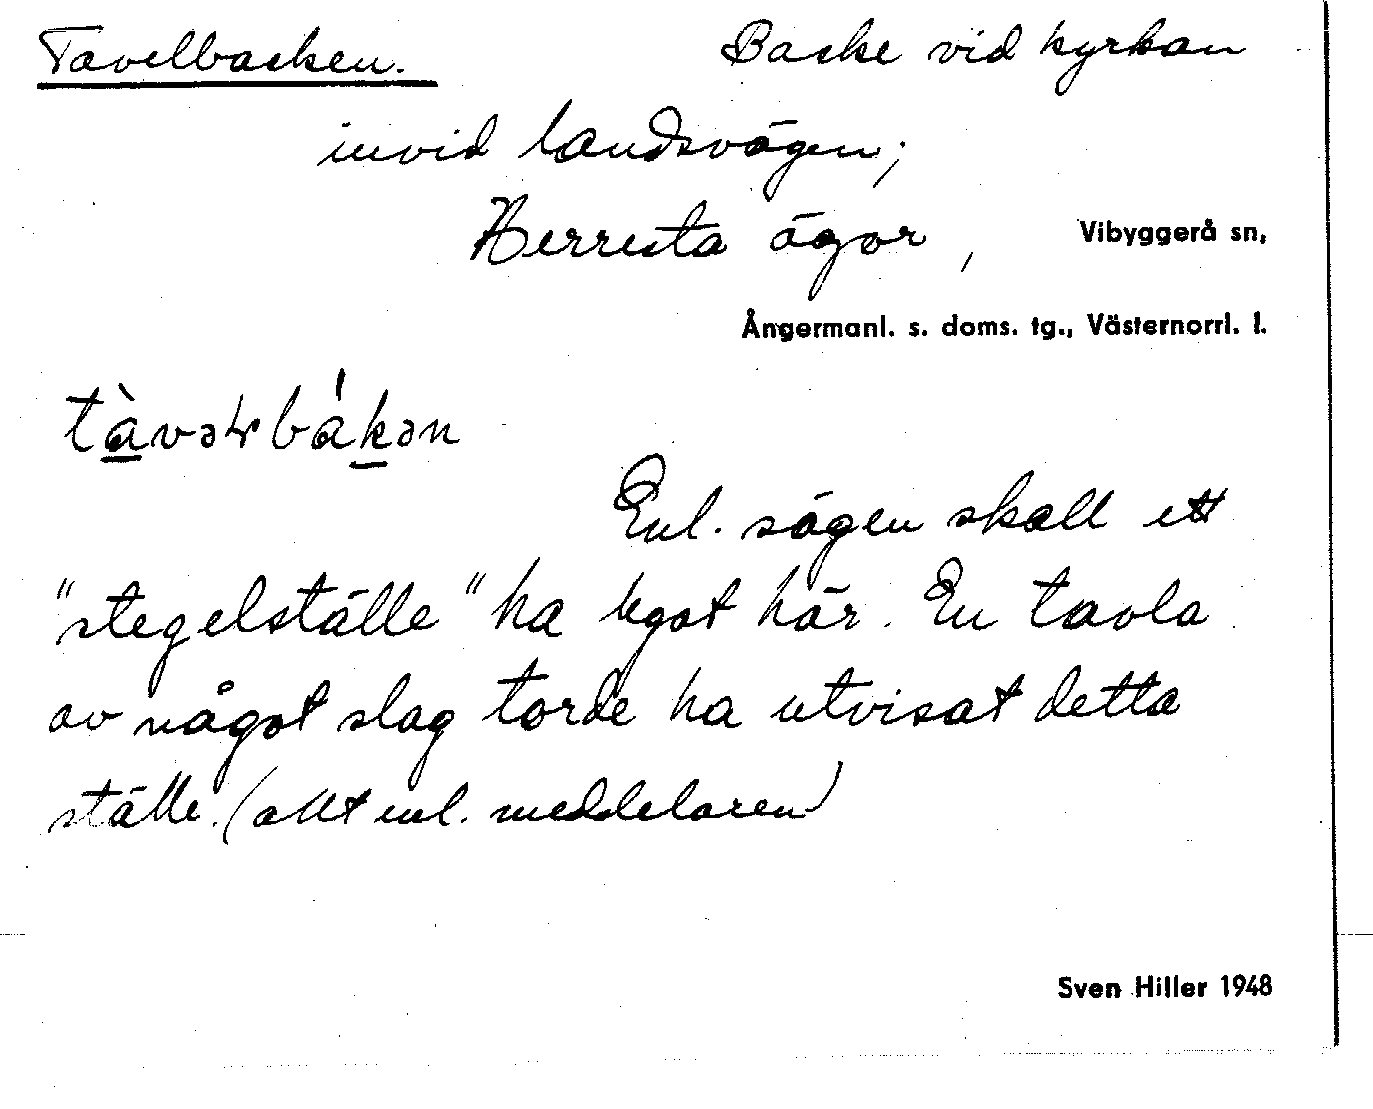 Tavelbacken. Backe vid kyrkan
invid landsvägen;
Herresta ägor, Vibyggerå sn,
Ångermanl. s. doms. tg., Västernorrl. l.
tàvəɫbákən
Enl. sägen skall ett
"stegelställe" ha legat här. En tavla
av något slag torde ha utvisat detta
ställe. (allt enl. meddelaren)
Sven Hiller 1948